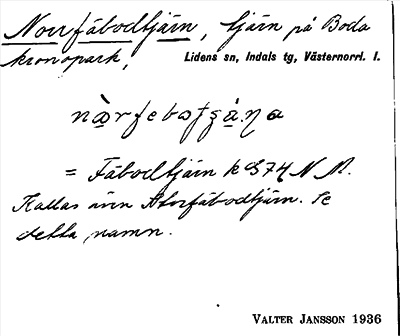 Norrfäbodtjärn, tjärn på Boda
kronopark, Lidens sn, Indals tg, Västernorrl. l.
= Fäbodtjärn k 574 N
Kallas även Storfäbodtjärn. Se
detta namn.
VALTER JANSSON 1936